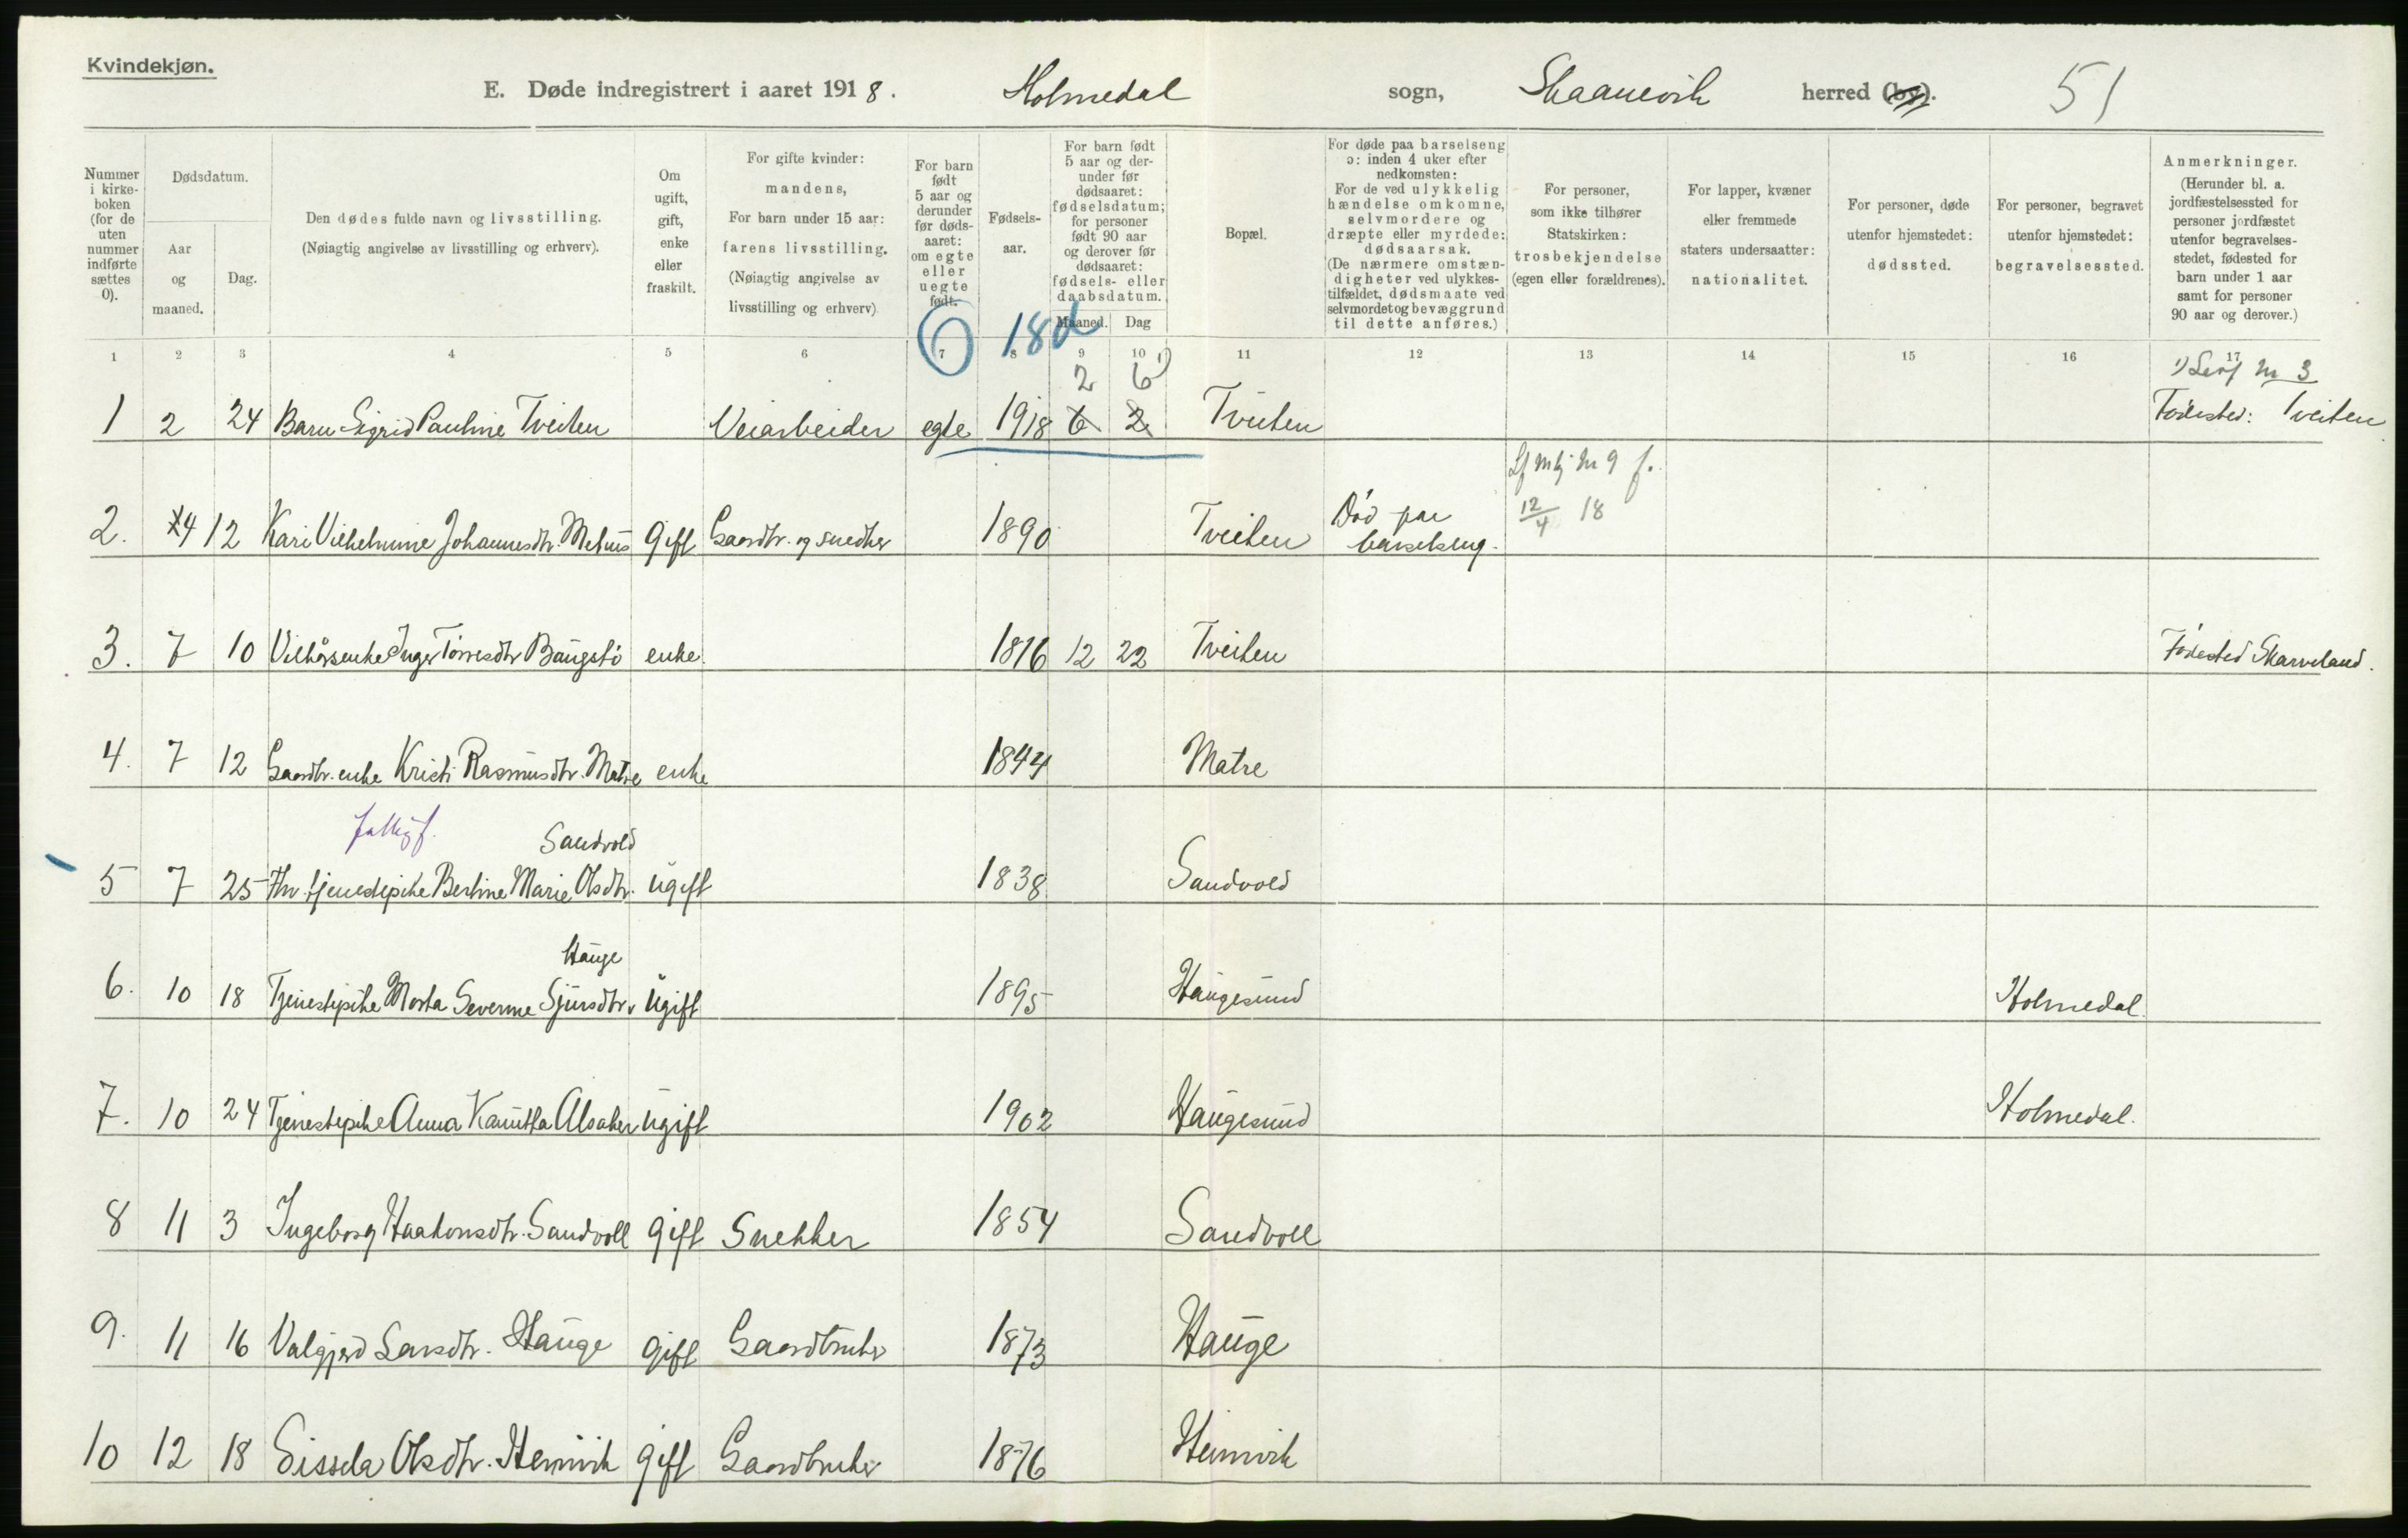 Kvindekjøn.
E. Døde indregistrert i aaret 1918. Holmedal sogn, Skaanevik herred (by). 51
Nummer i kirkeboken (for de uten nummer indførte sættes 0).
Dødsdatum.
Aar og maaned.
Dag.
Den dødes fulde navn og livsstilling.
(Nøiagtig angivelse av livsstilling og erhverv).
Om ugift, gift, enke eller fraskilt.
For gifte kvinder: mandens,
For barn under 15 aar: farens livsstilling.
(Nøiagtig angivelse av livsstilling og erhverv)
For barn født 5 aar og derunder før dødsaaret: om egte eller uegte født.
Fødselsaar.
For barn født 5 aar og derunder før dødsaaret: fødselsdatum; for personer født 90 aar og derover før dødsaaret: fødsels- eller daabsdatum.
Maaned. Dag
Bopæl.
For døde paa barselseng ɔ: inden 4 uker efter nedkomsten:
For de ved ulykkelig hændelse omkomne, selvmordere og dræpte eller myrdede: dødsaarsak.
(De nærmere omstændigheter ved ulykkestilfældet, dødsmaate ved selvmordet og bevæggrund til dette anføres.)
For personer, som ikke tilhører Statskirken: trosbekjendelse (egen eller forældrenes).
For lapper, kvæner eller fremmede staters undersaatter: nationalitet.
For personer, døde utenfor hjemstedet: dødssted.
For personer, begravet utenfor hjemstedet: begravelsessted.
Anmerkninger.
(Herunder bl. a. jordfæstelsessted for personer jordfæstet utenfor begravelsesstedet, fødested for barn under 1 aar samt for personer 90 aar og derover.)
18d
1 2 3 4 5 6 7 8 9 10 11 12 13 14 15 16 17
2 6 1) 1) Levf nr 3
1 2 24 Barn Sigrid Pauline Tveiten Veiarbeider egte 1918 6 2 Tveiten Fødested: Tveiten
Lf mkj nr 9 f. 12/4 18
2. 4 12 Kari Vilhelmine Johannesdtr. Mehus gift Gaardbr. og snedker 1890 Tveiten Død paa barselseng.
3. 7 10 Vilkårsenke Inger Torresdtr Baugstø enke. 1816 12 22 Tveiten Fødested Skarveland.
4. 7 12 Gaardbr. enke Kristi Rasmusdtr. Matre enke 1844 Matre
Sandvold
5 7 25 Fhv. tjenestepike Bertine Marie Olsdtr. ugift 1838 Sandvold
Hauge
6. 10 18 Tjenestepike Marta Severine Sjursdtr. ugift 1895 Haugesund Holmedal.
7. 10 24 Tjenestepike Anna Kamilla Alsaker ugift 1902 Haugesund Holmedal.
8 11 3 Ingeborg Haakonsdtr. Sandvoll gift Snekker 1854 Sandvoll
9. 11 16 Valgjerd Larsdtr. Hauge gift Gaardbruker 1873 Hauge
10 12 18 Sissela Olsdtr. Heimvik gift Gaardbruker 1876 Heimvik